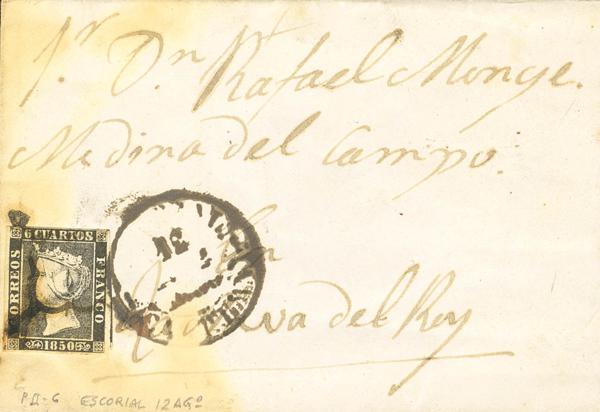 Sr. Dn. Rafael Monge.
Medina del Campo.
En
Nava del Rey
6 CUARTOS
CORREOS
FRANCO
1850
12
ESCORIAL 12 AGO